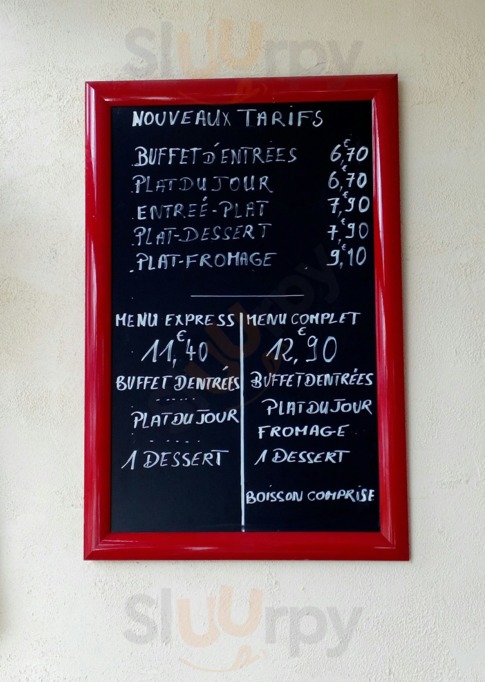 Sluurpy
NOUVEAUX TARIFS
BUFFET D'ENTRÉES 6,70 €
PLAT DU JOUR 6,70 €
ENTREÉ-PLAT 7,90 €
PLAT-DESSERT 7,90 €
PLAT-FROMAGE 9,10 €
MENU EXPRESS
11,40 €
BUFFET D'ENTRÉES
PLAT DU JOUR
1 DESSERT
MENU COMPLET
12,90 €
BUFFET D'ENTRÉES
PLAT DU JOUR
FROMAGE
1 DESSERT
BOISSON COMPRISE
Sluurpy